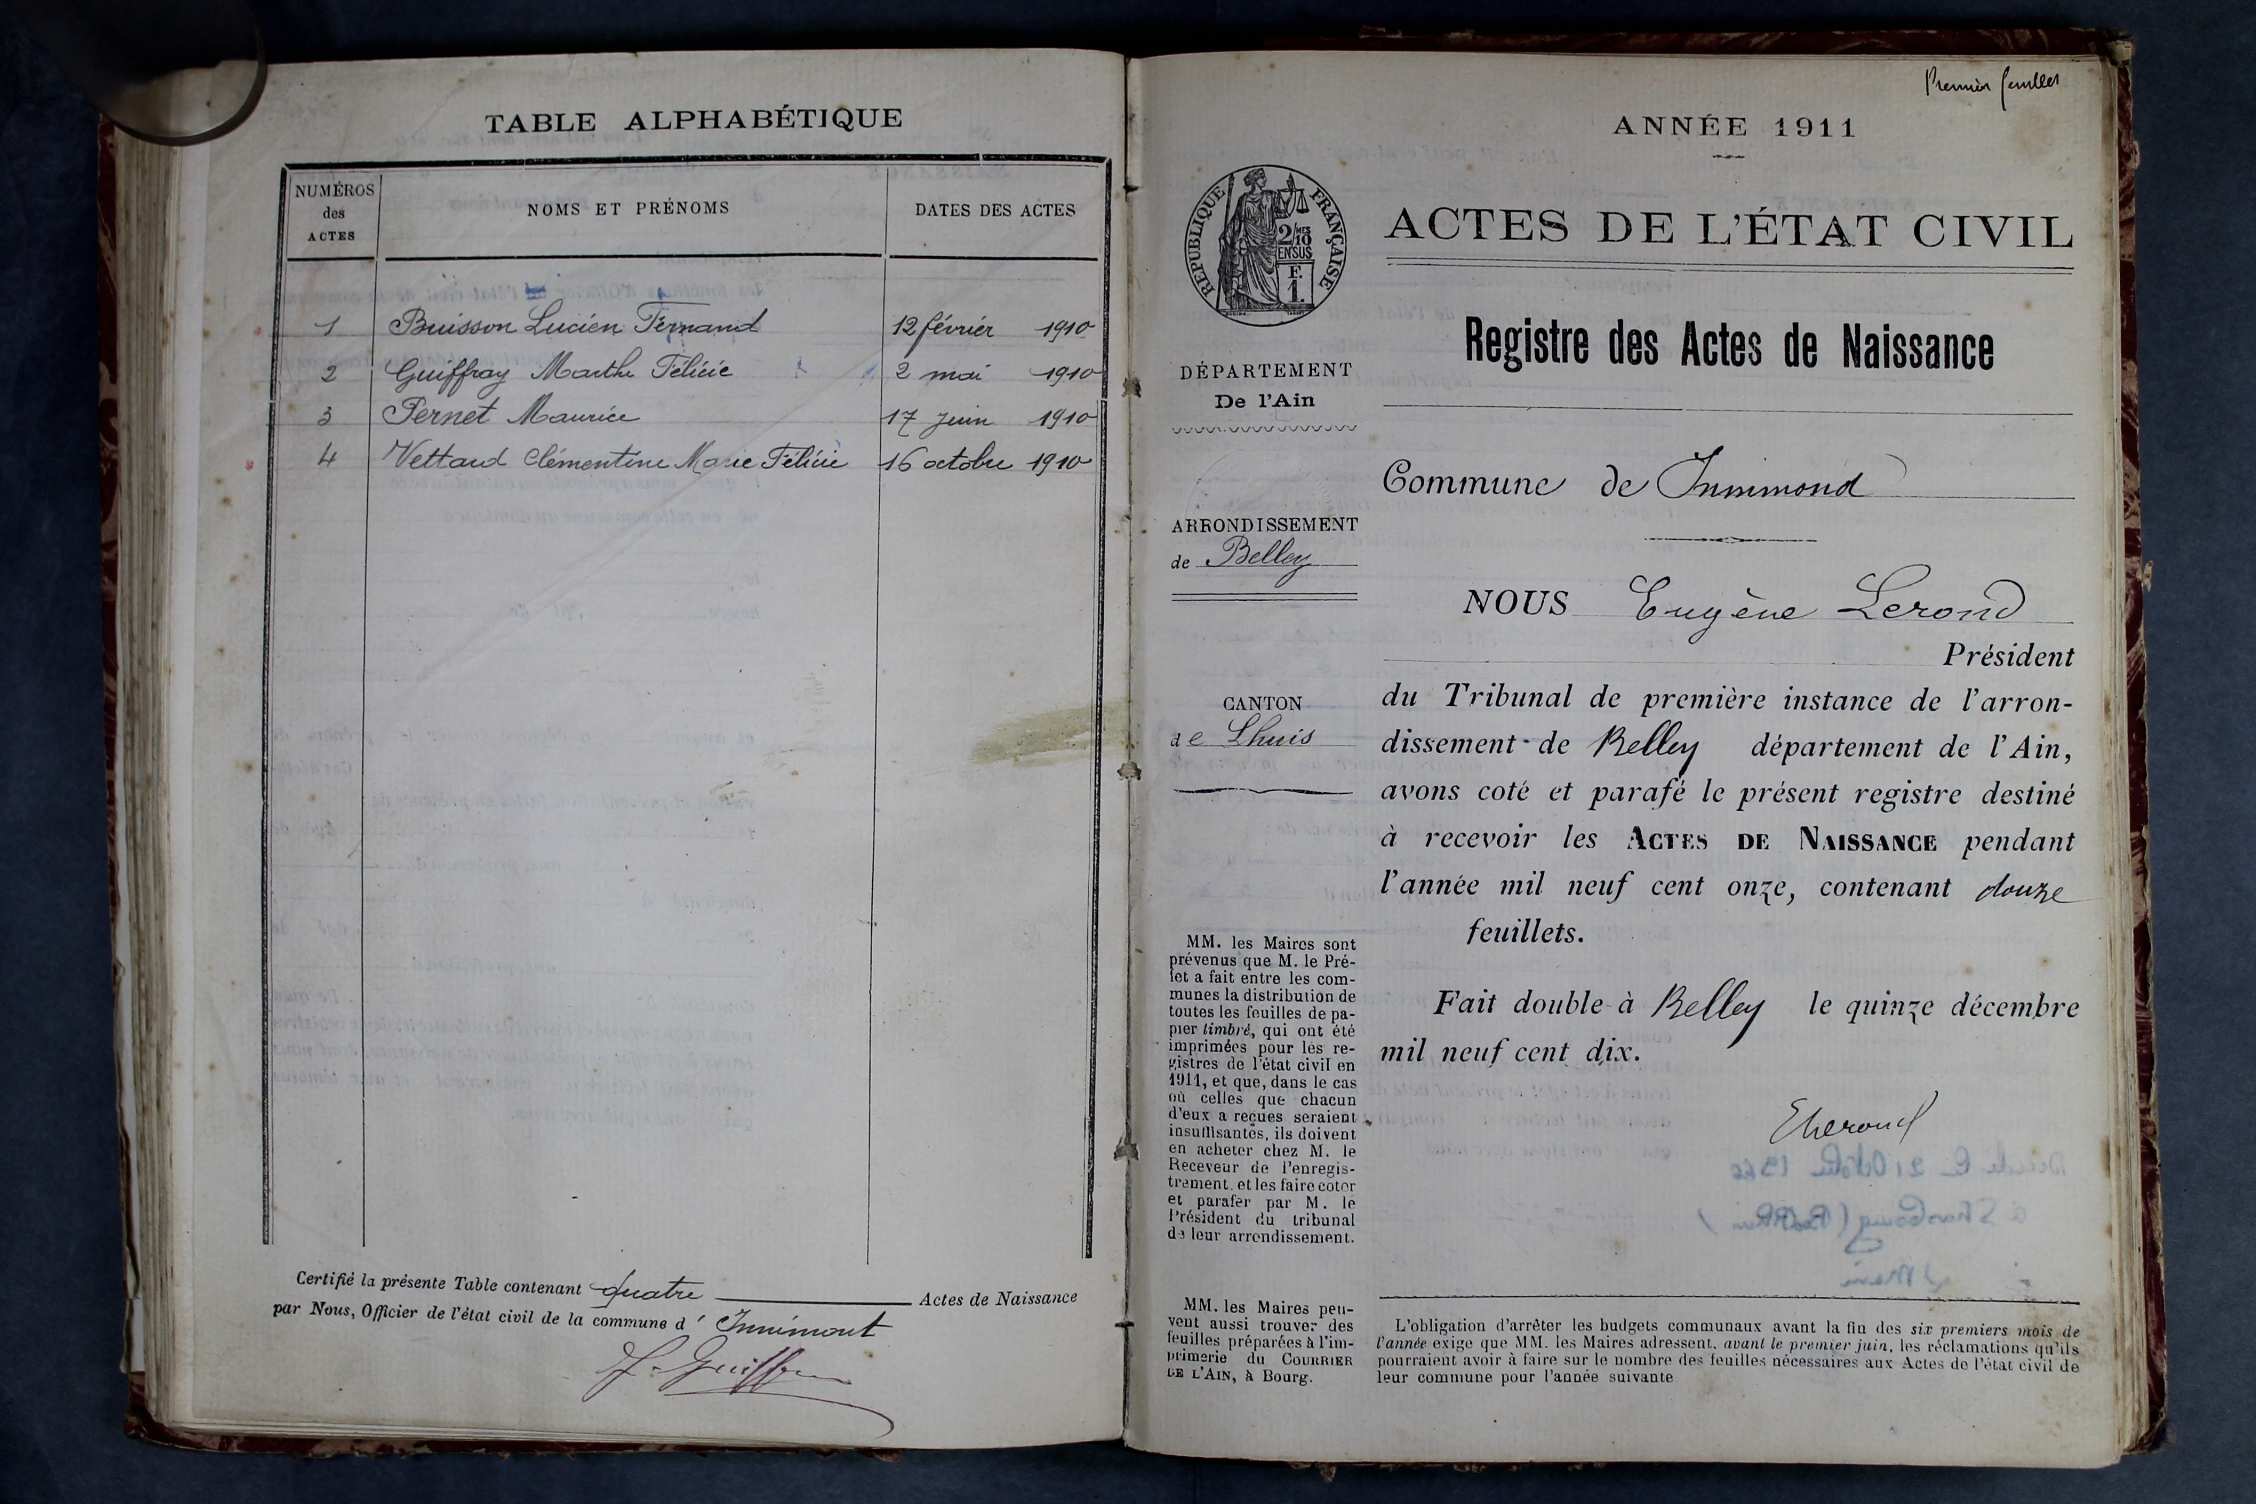 TABLE ALPHABÉTIQUE
NUMÉROS des ACTES
NOMS ET PRÉNOMS
DATES DES ACTES
1 Buisson Lucien Fernand 12 février 1910
2 Guiffray Marthe Félicie 2 mai 1910
3 Pernet Maurice 17 juin 1910
4 Vettard Clémentine Marie Félicie 16 octobre 1910
Certifié la présente Table contenant quatre Actes de Naissance
par Nous, Officier de l'état civil de la commune d' Innimont
Premier feuillet
ANNÉE 1911
RÉPUBLIQUE FRANÇAISE
2/10 MES
EN SUS
F.
1.
ACTES DE L'ÉTAT CIVIL
Registre des Actes de Naissance
DÉPARTEMENT
De l'Ain
ARRONDISSEMENT
de Belley
CANTON
de Lhuis
MM. les Maires sont
prévenus que M. le Pré-
fet a fait entre les com-
munes la distribution de
toutes les feuilles de pa-
pier timbré, qui ont été
imprimées pour les re-
gistres de l'état civil en
1911, et que, dans le cas
où celles que chacun
d'eux a reçues seraient
insuffisantes, ils doivent
en acheter chez M. le
Receveur de l'enregis-
trement, et les faire coter
et parafer par M. le
Président du tribunal
de leur arrondissement.
MM. les Maires peu-
vent aussi trouver des
feuilles préparées à l'im-
primerie du COURRIER
DE L'AIN, à Bourg.
Commune de Innimond
NOUS Eugène Lerond
Président
du Tribunal de première instance de l'arron-
dissement de Belley département de l'Ain,
avons coté et parafé le présent registre destiné
à recevoir les ACTES DE NAISSANCE pendant
l'année mil neuf cent onze, contenant douze
feuillets.
Fait double à Belley le quinze décembre
mil neuf cent dix.
L'obligation d'arrêter les budgets communaux avant la fin des six premiers mois de
l'année exige que MM. les Maires adressent, avant le premier juin, les réclamations qu'ils
pourraient avoir à faire sur le nombre des feuilles nécessaires aux Actes de l'état civil de
leur commune pour l'année suivante